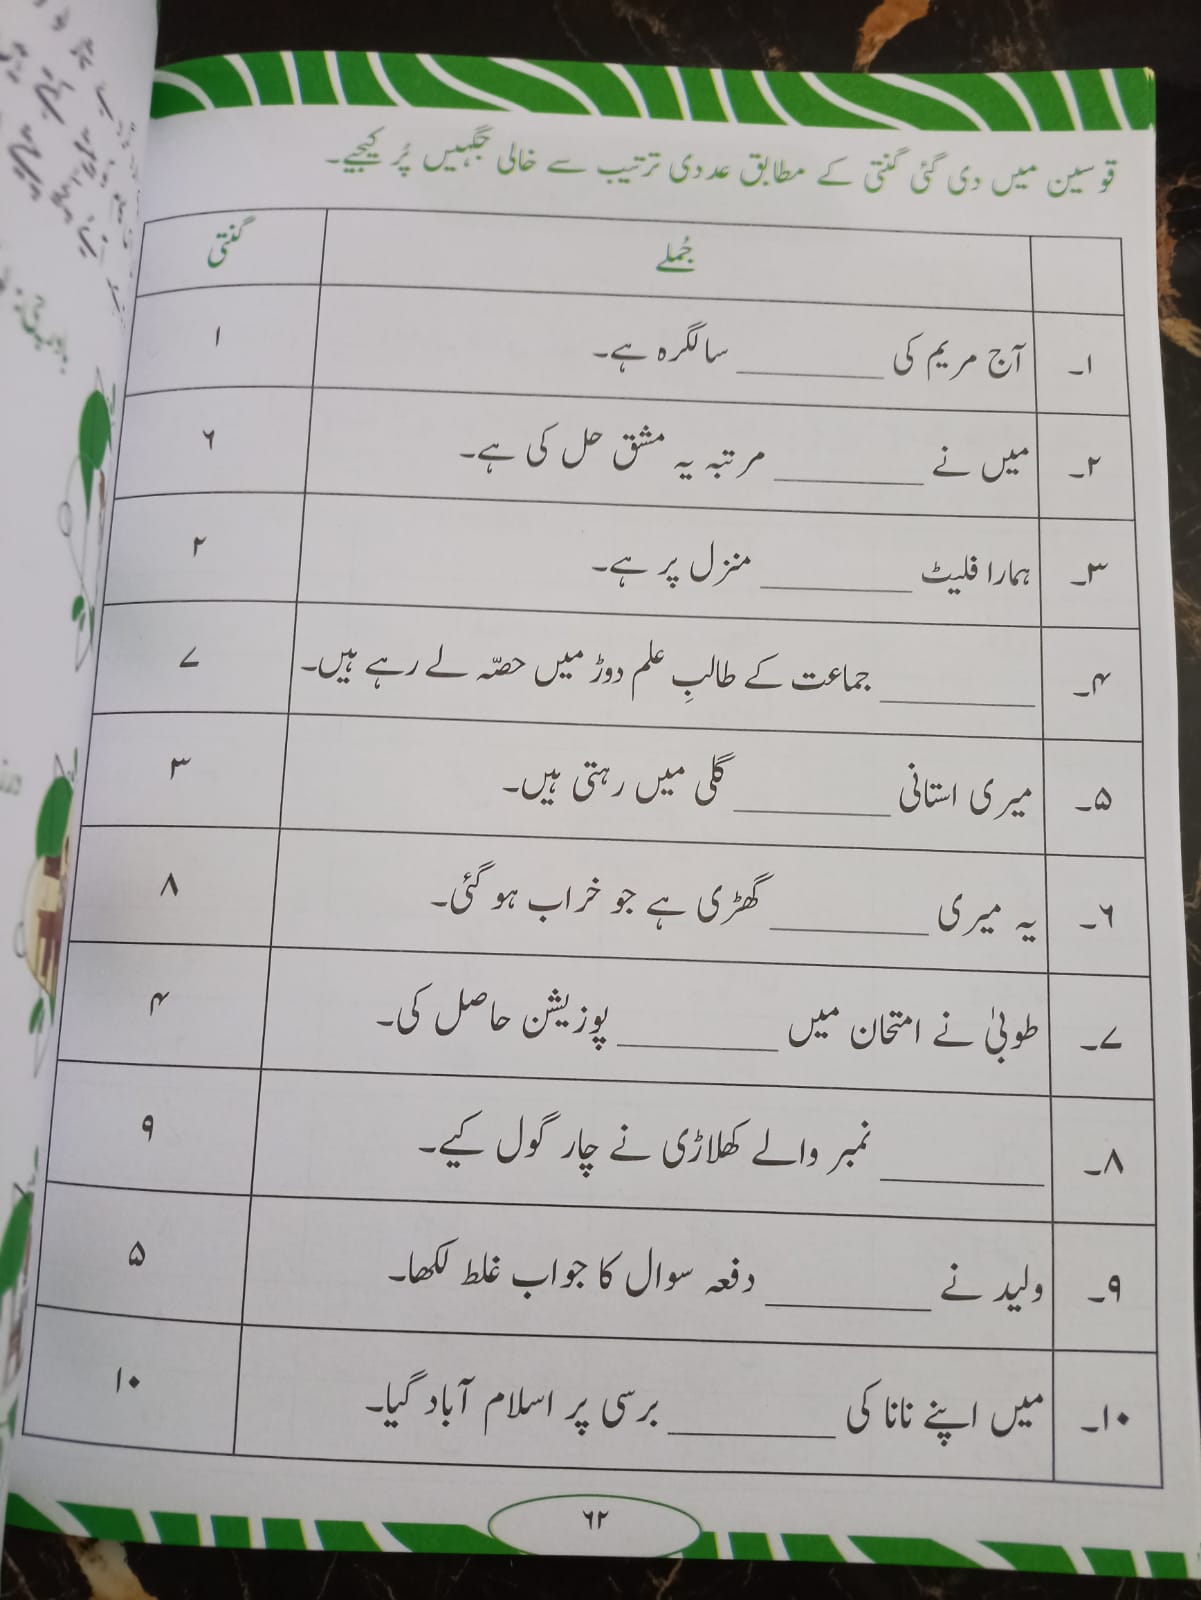 قوسین میں دی گئی گنتی کے مطابق عددی ترتیب سے خالی جگہیں پُر کیجیے۔
جُملے گنتی
۱۔ آج مریم کی __________ سالگرہ ہے۔ ۱
۲۔ میں نے __________ مرتبہ یہ مشق حل کی ہے۔ ۶
۳۔ ہمارا فلیٹ __________ منزل پر ہے۔ ۲
۴۔ __________ جماعت کے طالبِ علم دوڑ میں حصّہ لے رہے ہیں۔ ۷
۵۔ میری استانی __________ گلی میں رہتی ہیں۔ ۳
۶۔ یہ میری __________ گھڑی ہے جو خراب ہو گئی۔ ۸
۷۔ طوبیٰ نے امتحان میں __________ پوزیشن حاصل کی۔ ۴
۸۔ __________ نمبر والے کھلاڑی نے چار گول کیے۔ ۹
۹۔ ولید نے __________ دفعہ سوال کا جواب غلط لکھا۔ ۵
۱۰۔ میں اپنے نانا کی __________ برسی پر اسلام آباد گیا۔ ۱۰
۶۲